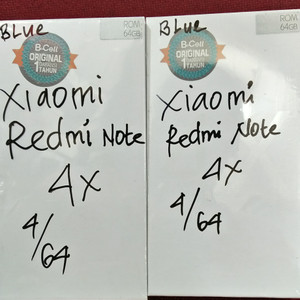 BLUE
ROM
64GB
B-Cell
ORIGINAL
1
TAHUN
Xiaomi
Redmi Note
4X
4/64
BLUE
ROM
64GB
B-Cell
ORIGINAL
1
TAHUN
Xiaomi
Redmi Note
4X
4/64